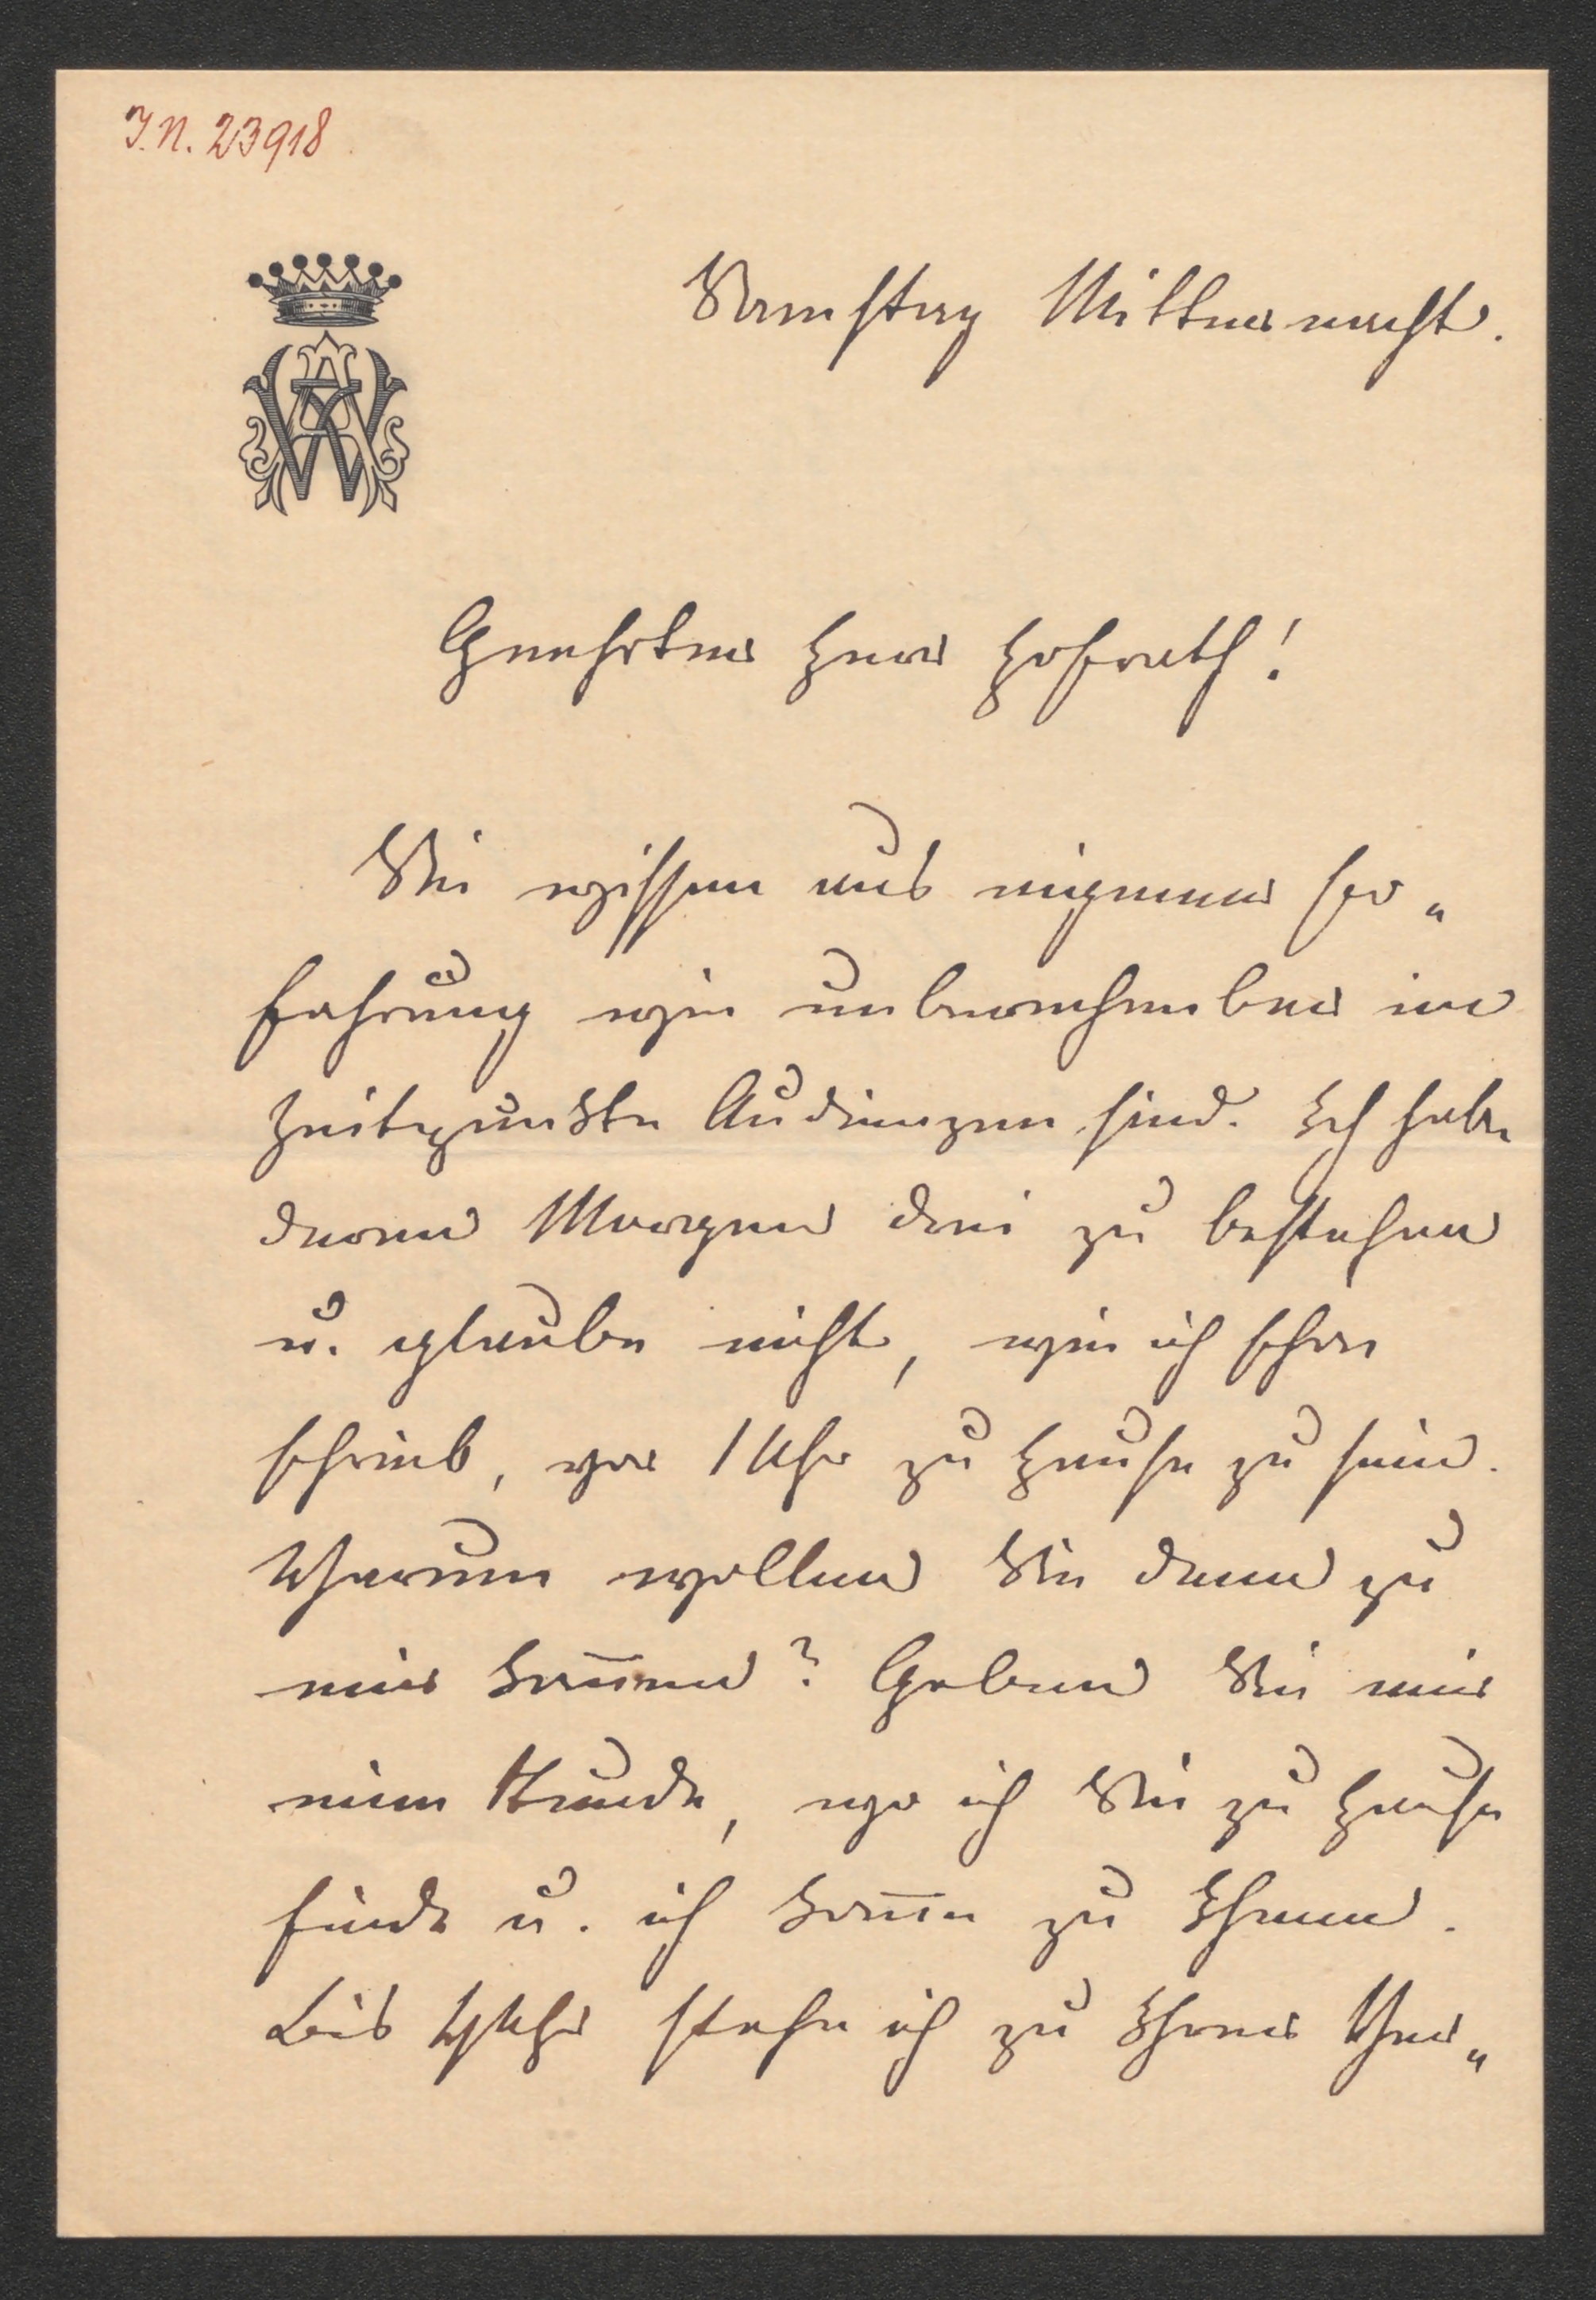 I.N. 23918
Samstag Mitternacht.
Geehrter Herr Hofrath!
Sie wissen aus eigener Er„
fahrung wie unberechenbar im
Zeitpunkte Audienzen sind. Ich habe
deren Morgen drei zu bestehen
u. glaube nicht, wie ich schon
schrieb, vor 1 Uhr zu Hause zu sein.
Warum wollen Sie denn zu
mir kom̅en? Geben Sie mir
eine Stunde, wo ich Sie zu Hause
finde u. ich kom̅e zu Ihnen.
Bis Uhr stehe ich zu Ihrer Ver„